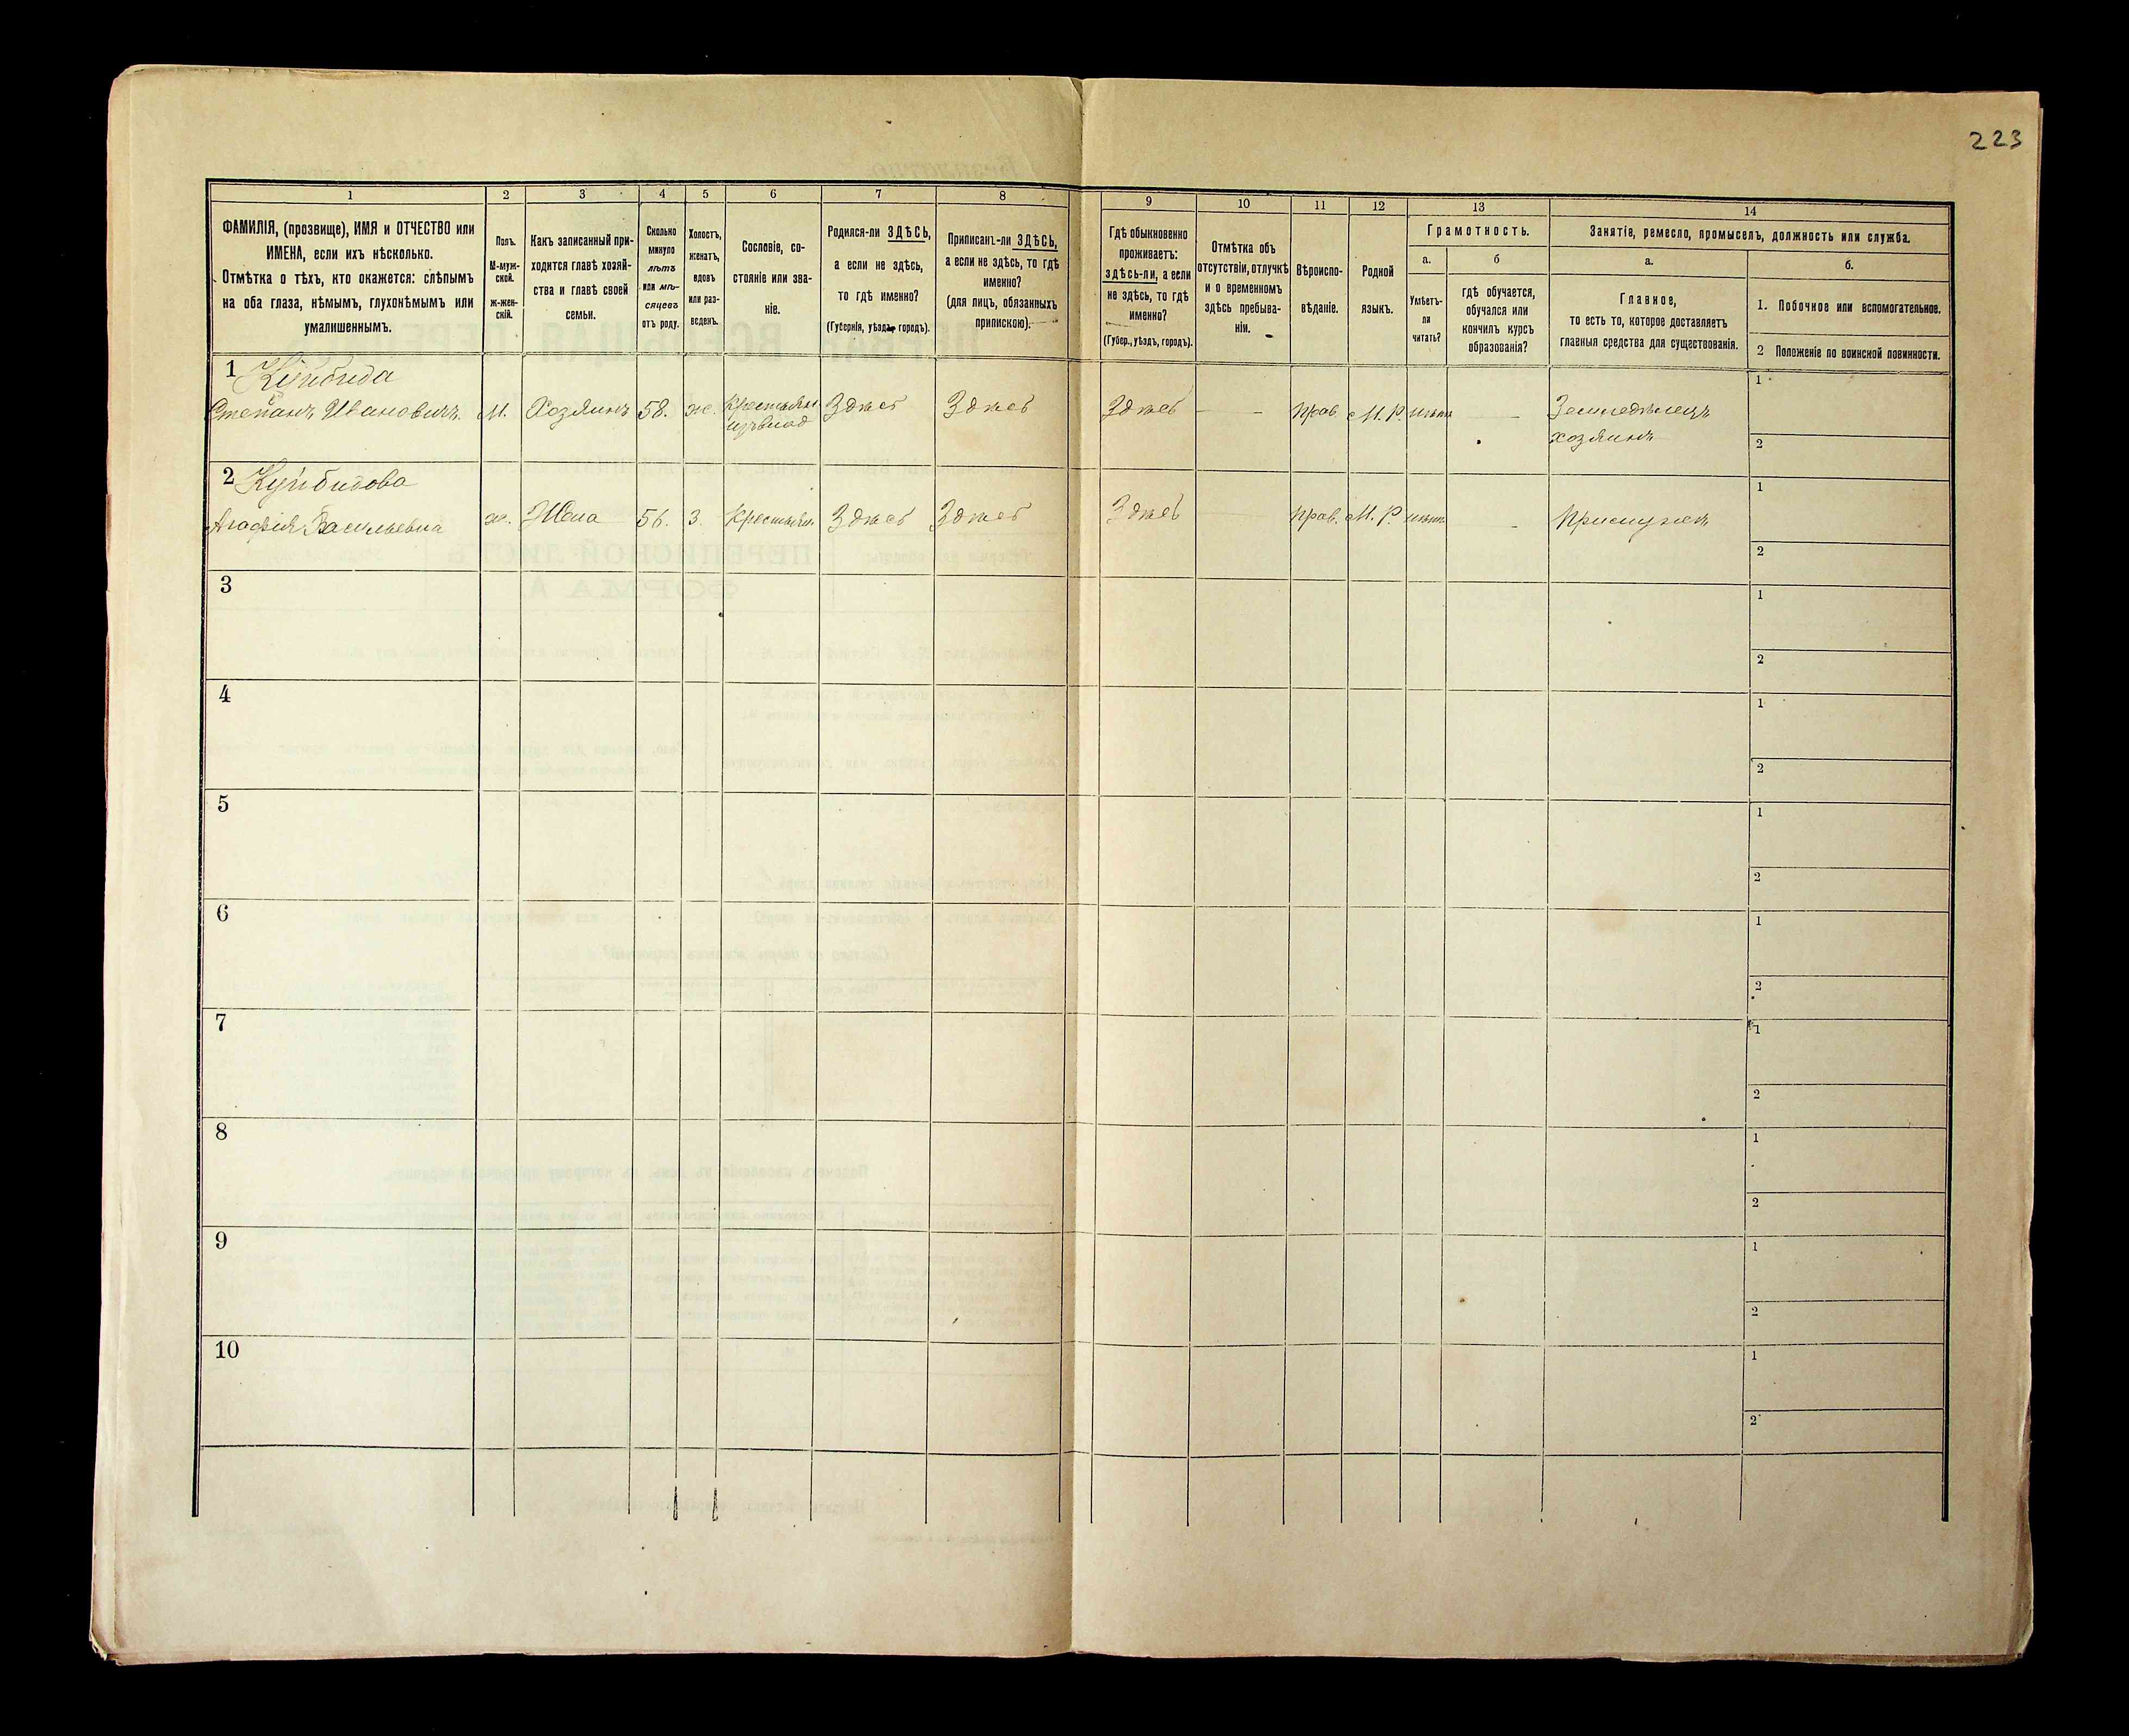 223
1
2
3
4
5
6
7
8
9
10
11
12
13
14
ФАМИЛІЯ, (прозвище), ИМЯ и ОТЧЕСТВО или
ИМЕНА, если ихъ нѣсколько.
Отмѣтка о тѣхъ, кто окажется: слѣпымъ
на оба глаза, нѣмымъ, глухонѣмымъ или
умалишеннымъ.
Полъ.
М-муж-
ской.
Ж-жен-
скій.
Какъ записанный при-
ходится главѣ хозяй-
ства и главѣ своей
семьи.
Сколько
минуло
лѣтъ
или мѣ-
сяцевъ
отъ роду.
Холостъ,
женатъ,
вдовъ
или раз-
веденъ.
Сословіе, со-
стояніе или зва-
ніе.
Родился-ли ЗДѢСЬ,
а если не здѣсь,
то гдѣ именно?
(Губернія, уѣздъ, городъ).
Приписанъ-ли ЗДѢСЬ,
а если не здѣсь, то гдѣ
именно?
(для лицъ, обязанныхъ
припискою).
Гдѣ обыкновенно
проживаетъ:
здѣсь-ли, а если
не здѣсь, то гдѣ
именно?
(Губер., уѣздъ, городъ).
Отмѣтка объ
отсутствіи, отлучкѣ
и о временномъ
здѣсь пребыва-
ніи.
Вѣроиспо-
вѣданіе.
Родной
языкъ.
Грамотность.
а.
Умѣетъ-
ли
читать?
б
гдѣ обучается,
обучался или
кончилъ курсъ
образованія?
Занятіе, ремесло, промыселъ, должность или служба.
а.
Главное,
то есть то, которое доставляетъ
главныя средства для существованія.
б.
1. Побочное или вспомогательное.
2 Положеніе по воинской повинности.
1 Куйбида
Степанъ Ивановичъ. М. Хозяинъ 58. ж. Крестьян. Здѣсь Здѣсь Здѣсь — — прав. М.Р. нѣтъ — Земледѣлецъ
хозяинъ
1
2
2 Куйбидова
Агафія Васильевна ж. Жена 56. З. Крестьян. Здѣсь Здѣсь Здѣсь — прав. М.Р. нѣтъ —
1
2
3
1
2
4
1
2
5
1
2
6
1
2
7
1
2
8
1
2
9
1
2
10
1
2